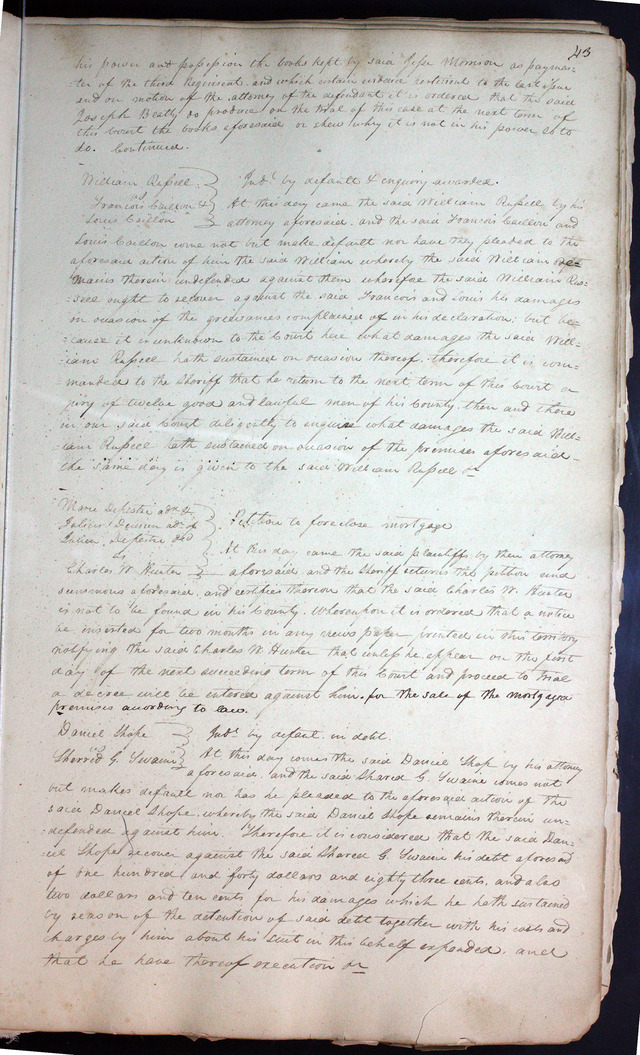 43
his power and possession the books kept by said Jesse Morrison as paymas-
ter of the third Regiment. and which contain evidence pertinent to the last issue
and on motion of the attorney of the defendant it is ordered that the said
Joseph Beatty do produce on the trial of this case at the next term of
this Court the books aforesaid or shew why it is not in his power so to
do. Continued.
William Russell
vs
Francois Caillou &
Louis Caillou
Judt. by default & enquiry awarded.
At this day came the said William Russell by his
attorney aforesaid. and the said Francois Caillou and
Louis Caillou come not but make default nor have they pleaded to the
aforesaid action of him the said William whereby the said William re-
-mains therein undefended against them wherefore the said William Rus-
-sell ought to recover against the said Francois and Louis his damages
on occasion of the greivances complained of in his declaration; but be-
-cause it is unknown to the Court here what damages the said Will-
-iam Russell hath sustained on occasion thereof. therefore it is com-
-manded to the Sheriff that he return to the next term of this Court a
jury of twelve good and lawful men of his County. then and there
in our said Court diligently to enquire what damages the said Will-
-iam Russell hath sustained on occasion of the premises aforesaid.
the same day is given to the said William Russell &c
Marie adx &
adr. of
Julien decd
vs
Charles W. Hunter
Petition to foreclose mortgage
At this day came the said plaintiffs by their attorney
aforesaid. and the Sheriff returns the petition and
summons aforesaid, and certifies thereon that the said Charles W. Hunter
is not to be found in his County. Whereupon it is ordered that a notice
be inserted for two months in any news paper printed in this territory
notifying the said Charles W. Hunter that unless he appear on the first
day of the next succeeding term of this Court and proceed to trial
a decree will be entered against him. for the sale of the mortgaged
premises according to law.
Daniel Shope
vs
Sherrid G. Swaine
Judt. by default. in debt.
At this day comes the said Daniel Shope by his attorney
aforesaid, and the said Shared G. Swaine comes not
but makes default nor has he pleaded to the aforesaid action of the
said Daniel Shope. whereby the said Daniel Shope remains therein un-
-defended against him. Therefore it is considered that the said Dan-
iel Shope recover against the said Shared G. Swaine his debt aforesaid
of one hundred and forty dollars and eighty three cents, and also
two dollars and ten cents for his damages which he hath sustained
by reason of the detention of said debt together with his costs and
charges by him about his suit in this behalf expended. and
that he have thereof execution &c